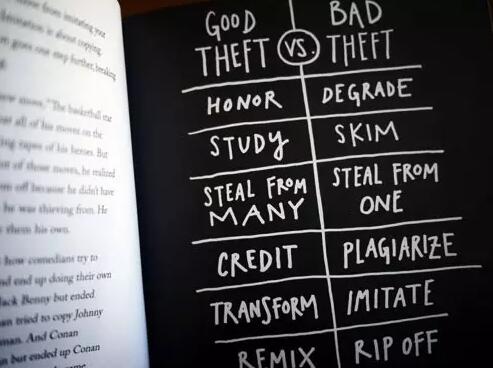 from imitating your
Imitation is about copying.
goes one step further, breaking
moves." The basketball star
all of his moves on the
tapes of his heroes. But
of those moves, he realized
off because he didn't have
he was thieving from. He
them his own.
how comedians try to
end up doing their own
Jack Benny but ended
tried to copy Johnny
And Conan
but ended up Conan
GOOD THEFT VS. BAD THEFT
HONOR DEGRADE
STUDY SKIM
STEAL FROM MANY STEAL FROM ONE
CREDIT PLAGIARIZE
TRANSFORM IMITATE
REMIX RIP OFF